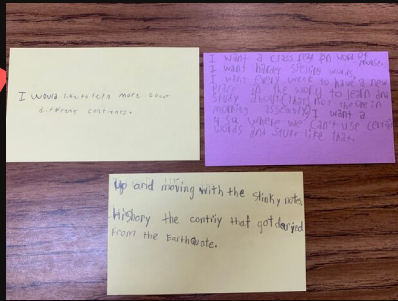 I would like to lern more about
different continents.
I want a class
I want harder spelling words.
I want every week to have a new
place in the world to lern and
study about
morning I want a
where we can't use certin
words and stuff like that.
Up and moving with the stinky notes
Hishory the contriy that got
from the Earthquate.